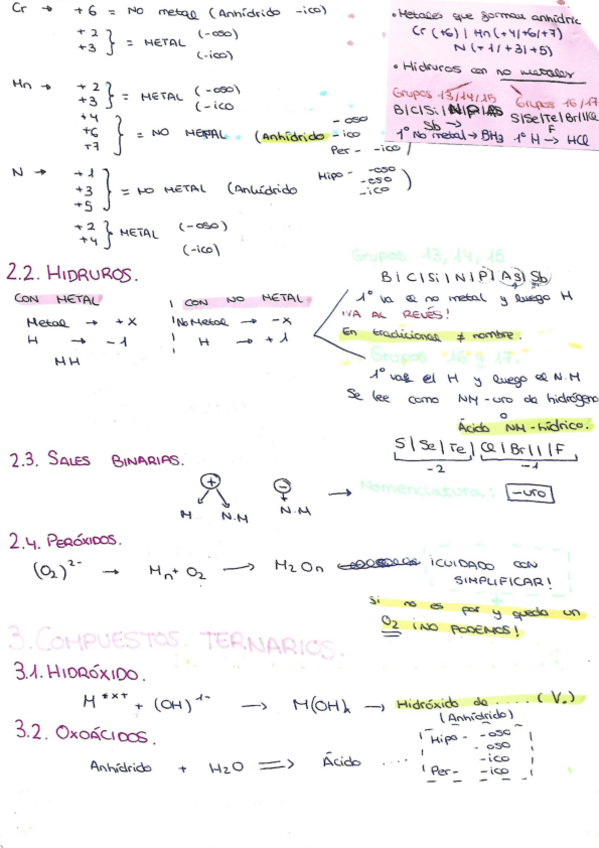 Cr → +6 = NO metal (Anhídrido -ico)
+2
+3 } = METAL (-oso)
(-ico)
Mn → +2
+3 } = METAL (-oso)
(-ico
+4
+6
+7 } = NO METAL (Anhídrido -oso
-ico
Per- -ico)
N → +1
+3
+5 } = NO METAL (Anhídrido Hipo- -oso
-oso
-ico)
+2
+4 } METAL (-oso)
(-ico)
• Metales que forman anhídric
Cr (+6) | Mn (+4/+6/+7)
N (+1/+3/+5)
• Hidruros con no metales
Grupos 13/14/15
B|C|Si|N|P|AS
Sb →
1º No metal → BH3
Grupos 16/17
S|Se|Te|Br|I|Cl
F
1º H → HCl
2.2. HIDRUROS.
CON METAL
Metal → +X
H → -1
MH
CON NO METAL
No Metal → -X
H → +1
Grupos 13, 14, 15
B|C|Si|N|P|As|Sb
1º va el no metal y luego H
¡VA AL REVÉS!
En tradicional ≠ nombre.
Grupos 16 y 17.
1º va el H y luego el N.M
Se lee como NM-uro de hidrógeno
o
Ácido NM-hídrico.
S|Se|Te| Cl|Br|I|F
-2 -1
2.3. SALES BINARIAS.
+ -
M N.M N.M
→ Nomenclatura: -uro
2.4. PERÓXIDOS.
(O2)²⁻ → Mn+ O2 → M2On
¡CUIDADO CON
SIMPLIFICAR!
Si no es par y queda un
O2 ¡NO PODEMOS!
3. COMPUESTOS TERNARIOS.
3.1. HIDRÓXIDO.
+ (OH)¹⁻ → → Hidróxido de .... (V.)
3.2. OXOÁCIDOS.
(Anhídrido)
Anhídrido + H2O ⇒ Ácido ....
Hipo- -oso
-oso
-ico
Per- -ico